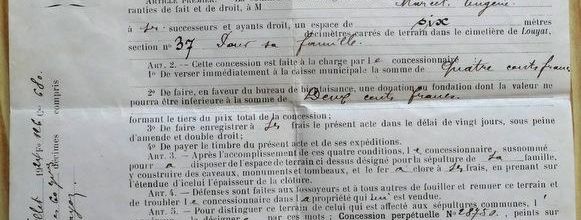 ARTICLE PREMIER.
ranties de fait et de droit, à M Marcel Eugène
à ses successeurs et ayants droit, un espace de six mètres
décimètres carrés de terrain dans le cimetière de Louyat,
section n° 37 Pour sa famille.
ART. 2. — Cette concession est faite à la charge par le concessionnaire
1° De verser immédiatement à la caisse municipale la somme de Quatre cents francs
2° De faire, en faveur du bureau de bienfaisance, une donation ou fondation dont la valeur ne
pourra être inférieure à la somme de Deux cents francs
formant le tiers du prix total de la concession;
3° De faire enregistrer à ses frais le présent acte dans le délai de vingt jours, sous peine
d'amende et double droit;
4° De payer le timbre du présent acte et de ses expéditions.
ART. 3. — Après l'accomplissement de ces quatre conditions, le concessionnaire, susnommé
pourra disposer de l'espace de terrain ci dessus désigné pour la sépulture de sa famille,
y construire des caveaux, monuments et tombeaux, et le fer a clore à ses frais, en prenant sur
l'étendue d'icelui l'épaisseur de la clôture.
ART. 4. — Défenses sont faites aux fossoyeurs et à tous autres de fouiller et remuer ce terrain et
de troubler le concessionnaire dans la propriété qui lui est vendue.
ART. 5. — Pour distinguer ce terrain de celui qui est affecté aux sépultures communes, l
mots : Concession perpétuelle N° peints sur
décimes compris